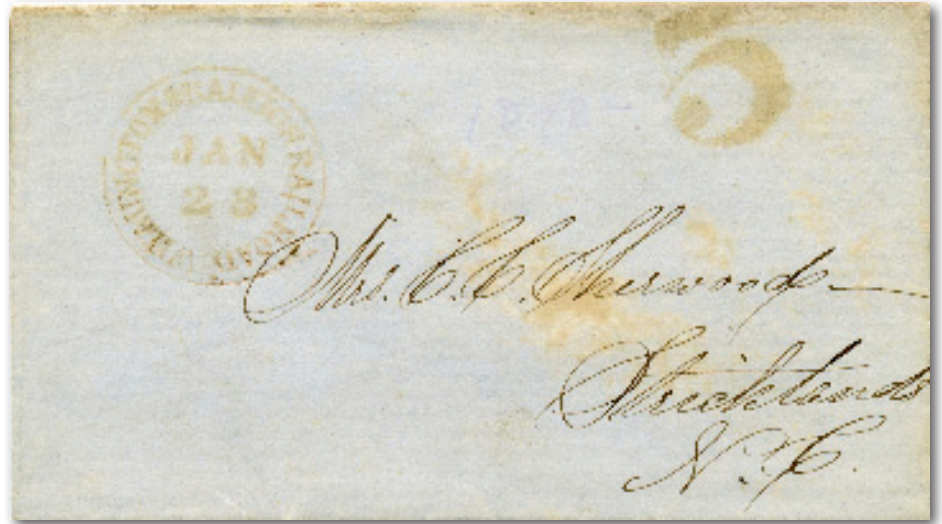 WILMINGTON & RALEIGH RAILROAD
JAN
28
5
Mrs. C. C. Sherwood
Stricklands
N. C.